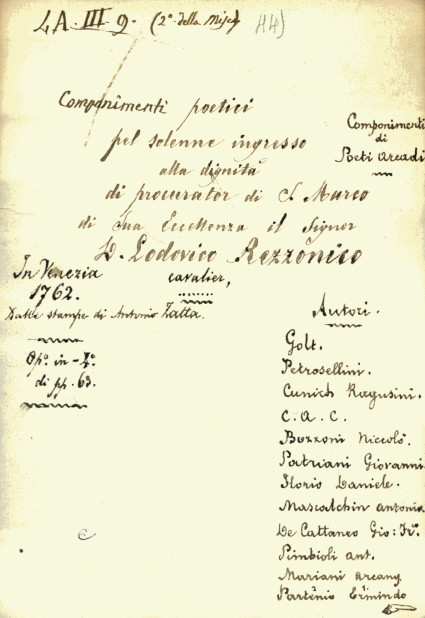 LA. III 9. (2ª della Misc) H4)
Componimenti poetici
pel solenne ingresso
alla dignità
di procurator di S. Marco
di Sua Eccellenza il Signor
D. Lodovico Rezzonico
cavalier,
Componimenti
di
Poeti arcadi
In Venezia
1762.
Dalle stampe di Antonio Zatta.
Opº. in-4º.
di pp. 63.
Autori.
Golt.
Petrosellini.
Cunich Ragusini.
C. A. C.
Bozzoni Niccolò.
Patriani Giovanni.
Florio Daniele.
Mascalchin antonia
De Cattaneo Gio: Frº.
Pimbioli ant.
Mariani Arcang
Partênio Ermindo